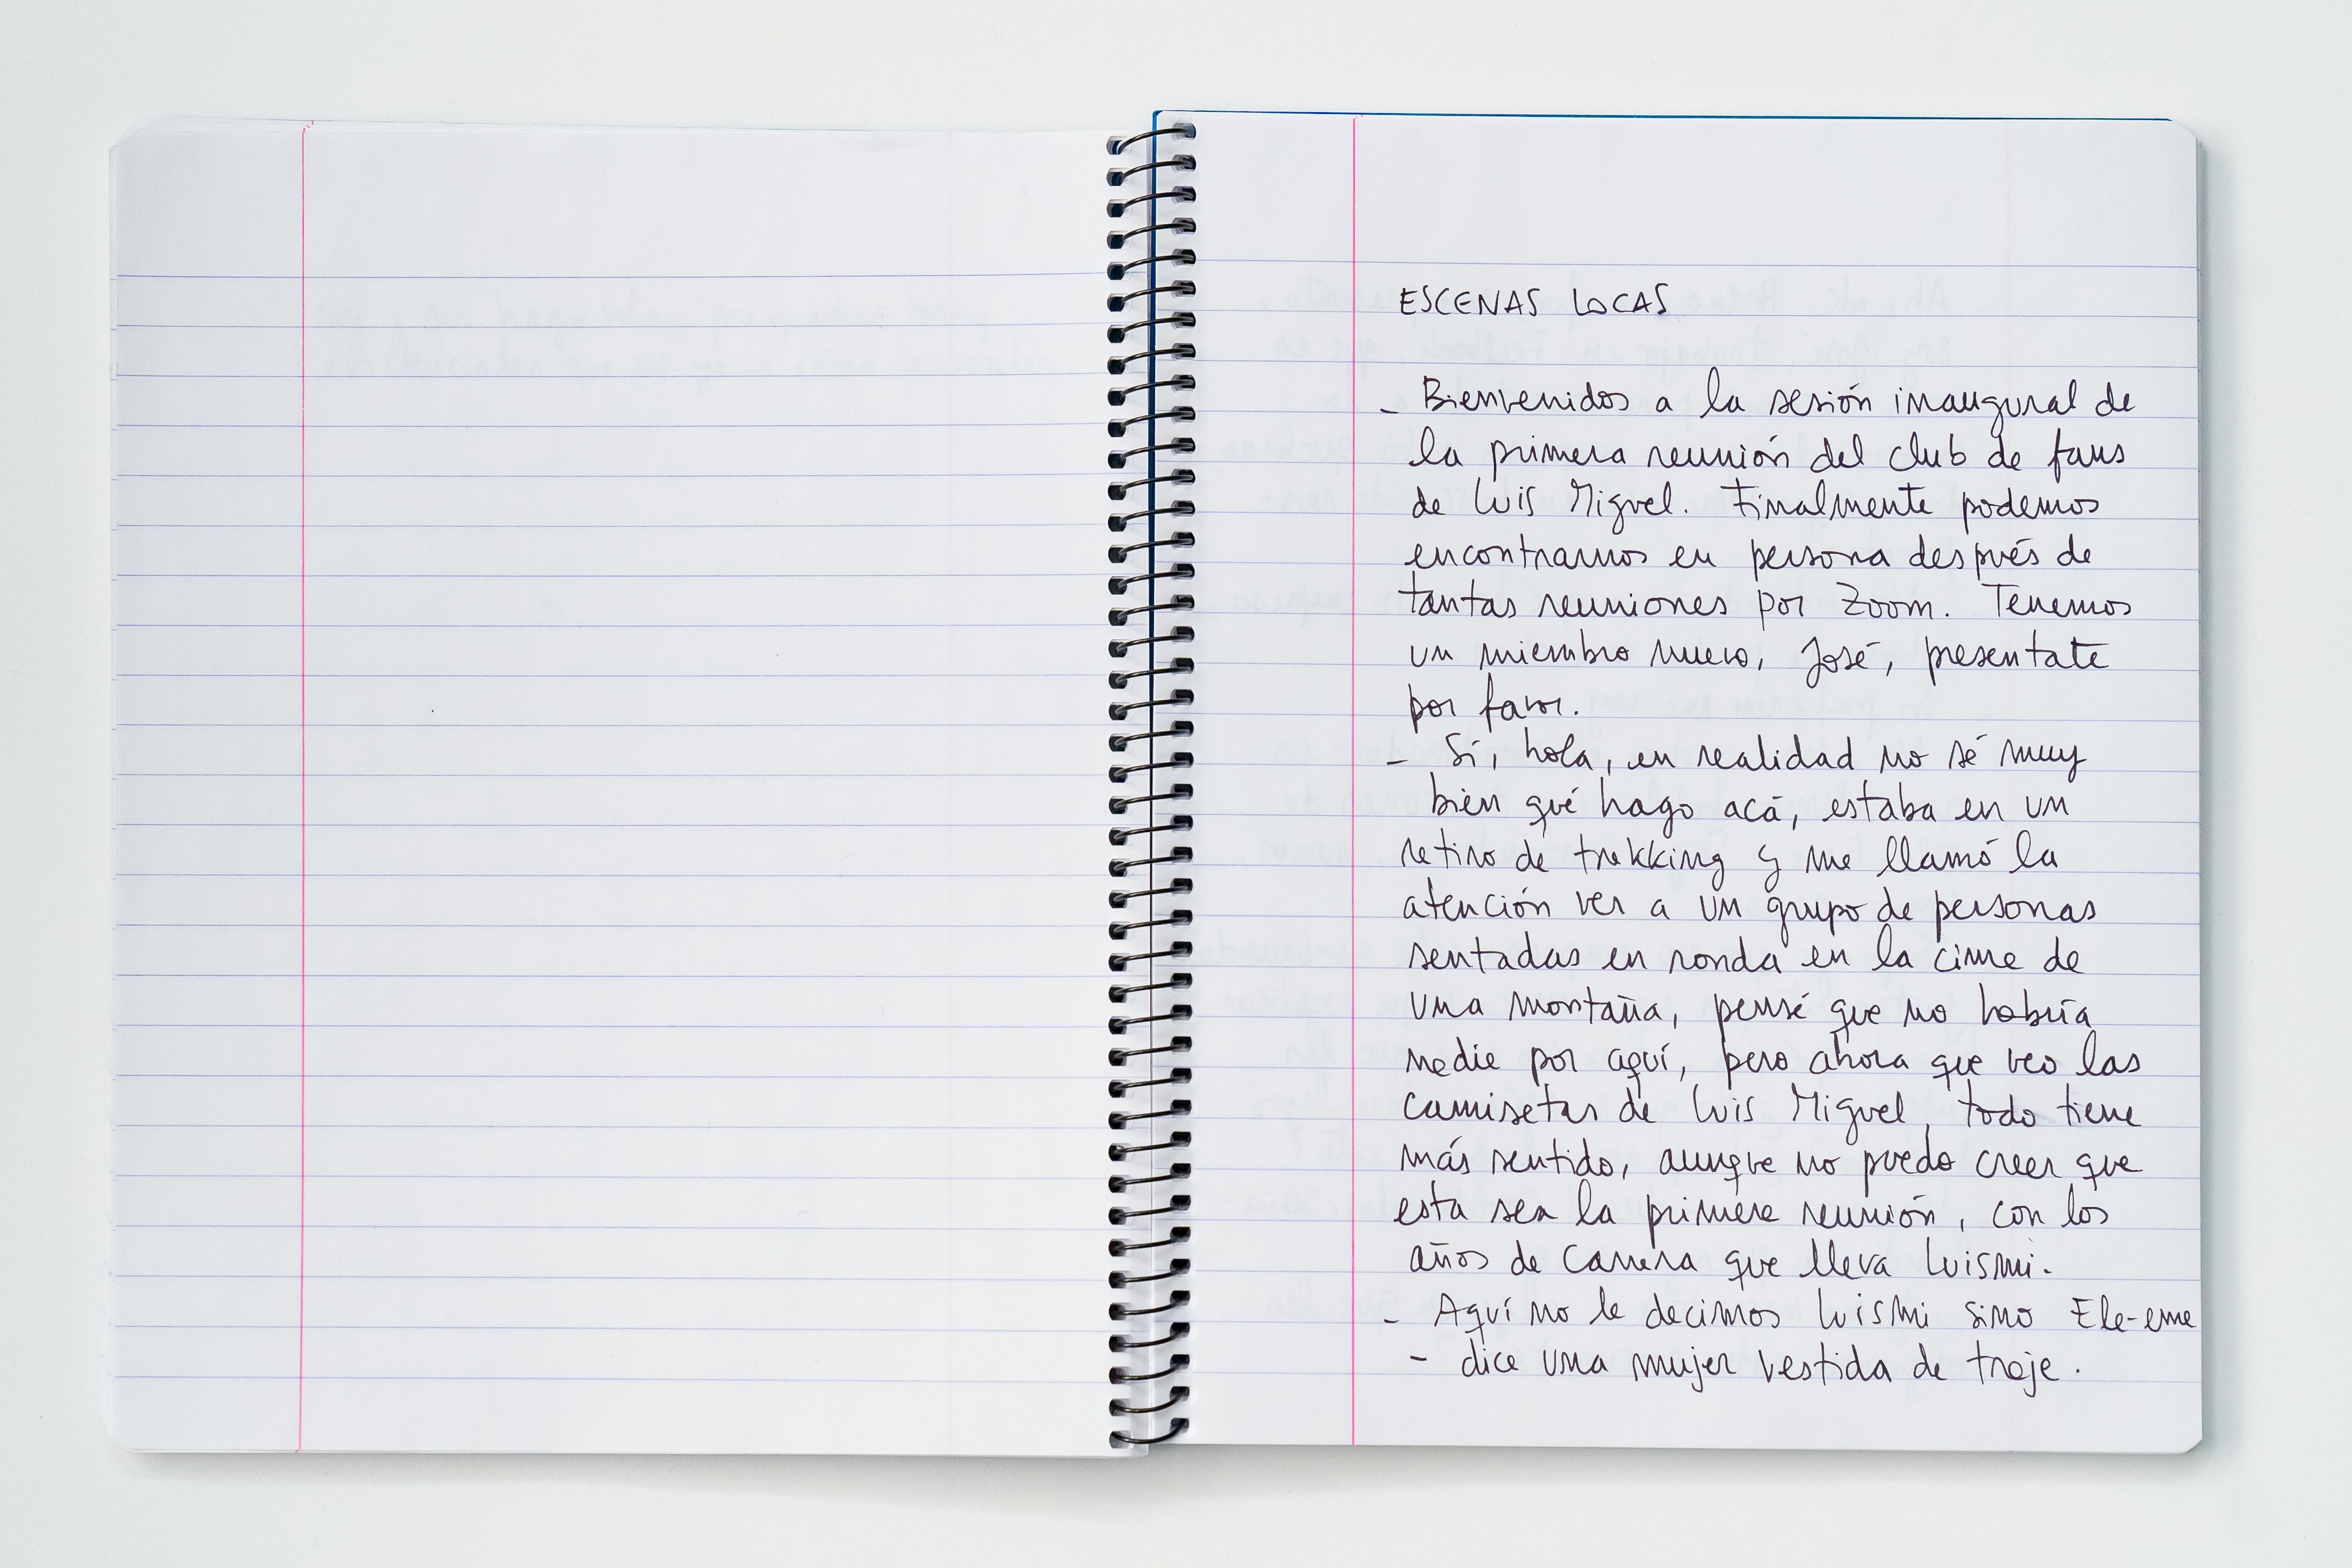 ESCENAS LOCAS
- Bienvenidos a la sesión inaugural de
la primera reunión del club de fans
de Luis Miguel. Finalmente podemos
encontrarnos en persona después de
tantas reuniones por Zoom. Tenemos
un miembro nuevo, José, presentate
por favor.
- Sí, hola, en realidad no sé muy
bien qué hago acá, estaba en un
retiro de trekking y me llamó la
atención ver a un grupo de personas
sentadas en ronda en la cima de
una montaña, pensé que no habría
nadie por aquí, pero ahora que veo las
camisetas de Luis Miguel, todo tiene
más sentido, aunque no puedo creer que
esta sea la primera reunión, con los
años de carrera que lleva Luismi.
- Aquí no le decimos Luismi sino Ele-eme
- dice una mujer vestida de traje.